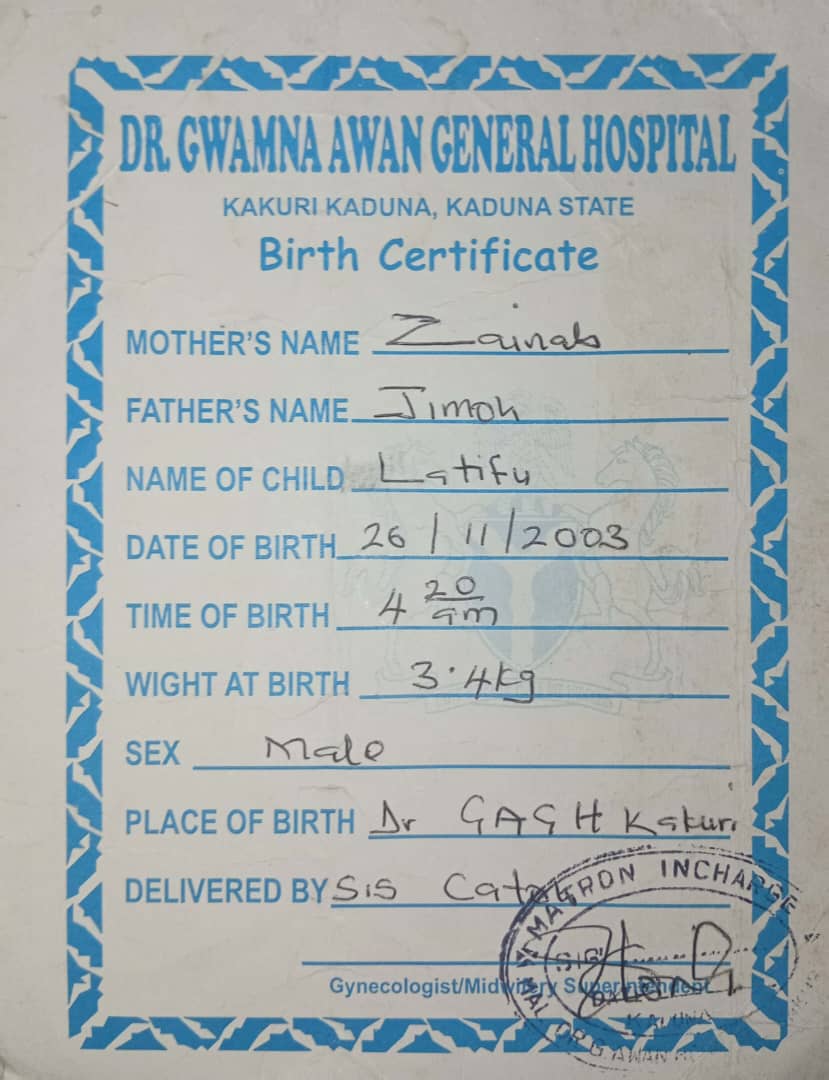 DR. GWAMNA AWAN GENERAL HOSPITAL
KAKURI KADUNA, KADUNA STATE
Birth Certificate
MOTHER'S NAME Zainab
FATHER'S NAME Jimoh
NAME OF CHILD Latifu
DATE OF BIRTH 26/11/2003
TIME OF BIRTH 4 20 am
WIGHT AT BIRTH 3.4kg
SEX Male
PLACE OF BIRTH Dr GAGH Kakuri
DELIVERED BY Sis
MATRON INCHARGE
SIG
Gynecologist/Midwifery Superintendent
KADUNA
DR. G. AWAN